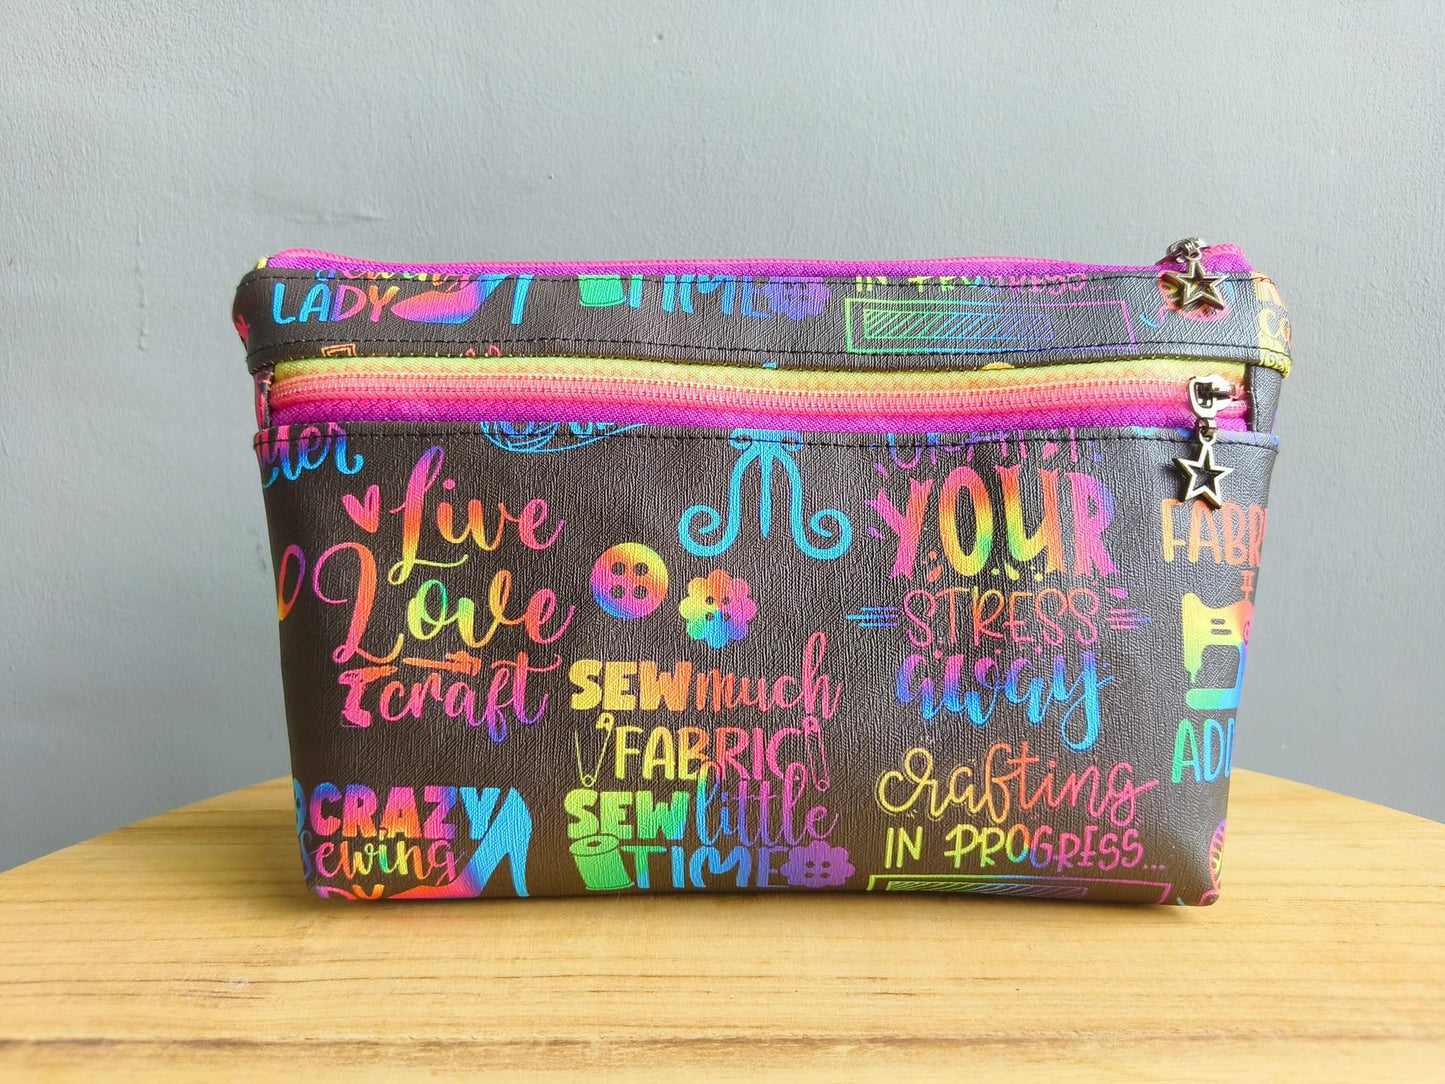 LADY
TIME
IN PROGRESS
Live
Love
craft
YOUR
STRESS
away
SEW much
FABRIC
SEW little
TIME
crafting
IN PROGRESS...
CRAZY
sewing